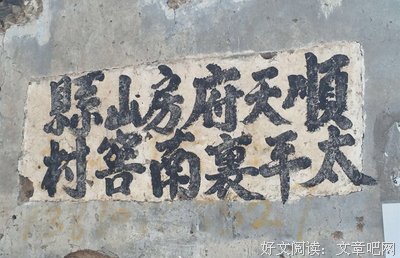 順天府房山縣
太平裏南窖村
好文阅读：文章吧网